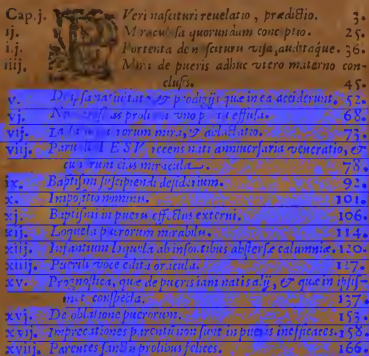 Cap.j. Veri nascituri reuelatio, prædictio. 3.
ij. Miracula quorundam conceptio. 25.
i.j. Portenta de nascituri visa, auditaque. 36.
iiij. Mira de pueris adhuc vtero materno con-
clusis. 45.
v. De ipsa natiuitate, & prodigijs quæ in ea acciderunt. 52.
vj. vno effusa. 68.
vij. mira, & ablactatio. 73.
viij. Paruuli IESV recens nati anniuersaria veneratio, &
cum miracula. 78.
ix. Baptismi suscipiendi desiderium. 92.
x. Impositio nominis. 101.
xj. Baptismi in pueris effectus externi. 106.
xij. Loquela puerorum mirabilis. 114.
xiij. Infantium loquela ab insontibus abstersæ calumniæ. 120.
xiiij. Puerili voce edita oracula. 127.
xv. Prognostica, quæ de pueris iam natis alij, & quæ in ipsis-
met conspecta. 137.
xvj. De oblatione puerorum. 153.
xvij. Imprecationes parentum non sunt in pueris inefficaces. 158.
xviij. Parentes sanctis prolibus felices. 166.